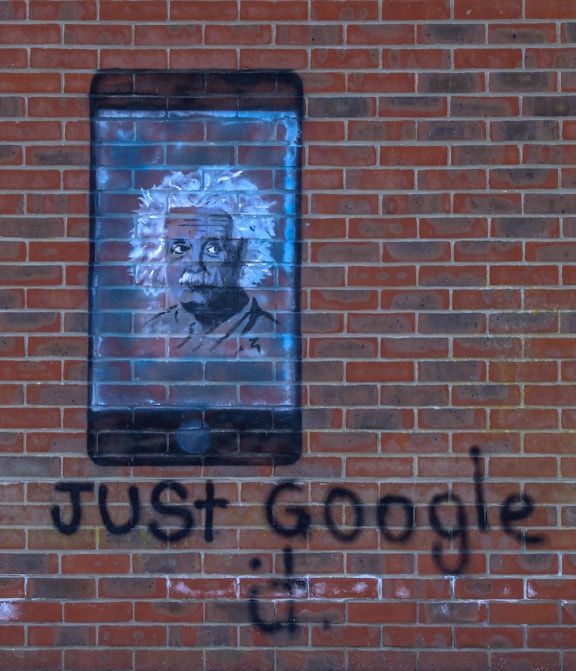 JUSt Google
it.